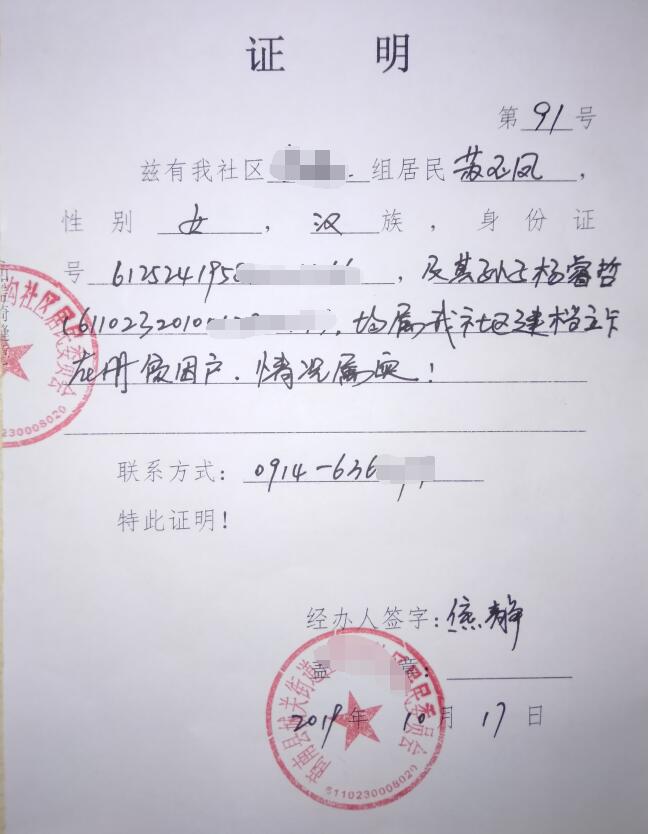 证 明
第 91 号
兹有我社区 组居民 苏玉凤 ，
性别 女 ， 汉 族，身份证
号 612524195 ，及其孙子杨睿哲
(6110232010 )，均属我社区建档立卡
在册贫困户．情况属实！
联系方式： 0914-636
特此证明！
经办人签字： 焦静
盖 章：
2019年 10 月 17 日
商南县城关街道 居民委员会
6110230008020
社区居民委员会
230008020